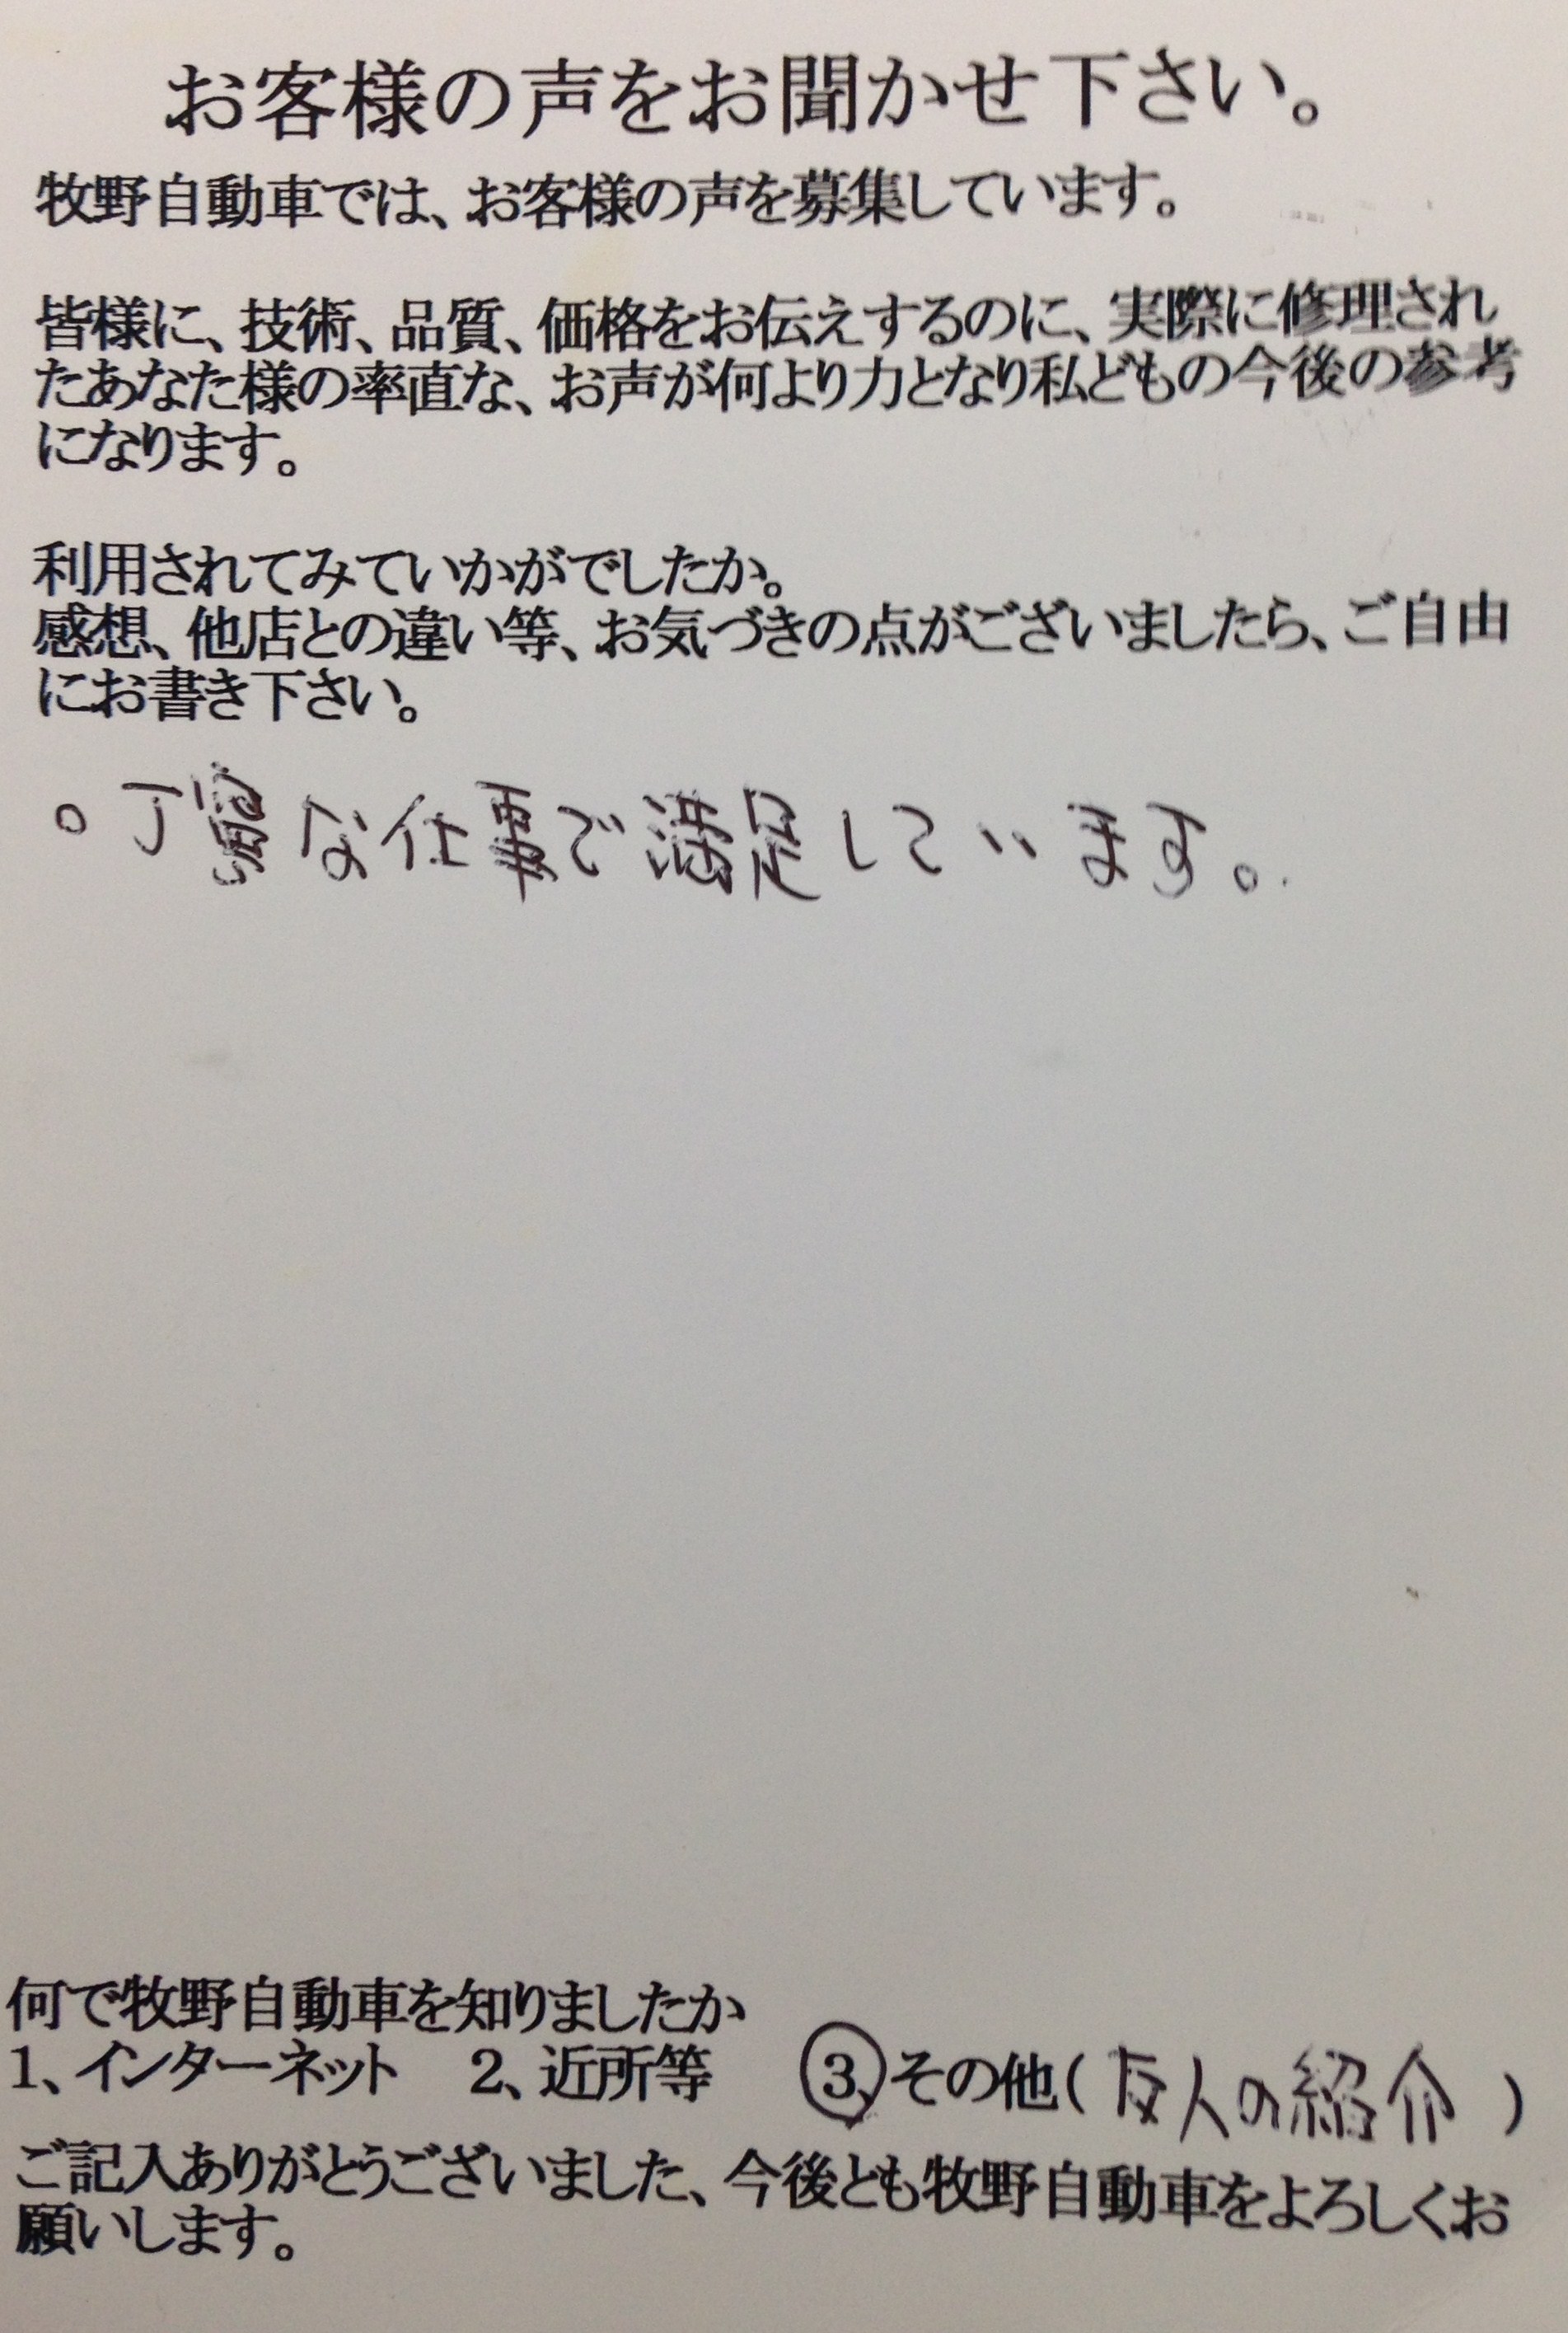 お客様の声をお聞かせ下さい。
牧野自動車では、お客様の声を募集しています。
皆様に、技術、品質、価格をお伝えするのに、実際に修理され
たあなた様の率直な、お声が何より力となり私どもの今後の参考
になります。
利用されてみていかがでしたか。
感想、他店との違い等、お気づきの点がございましたら、ご自由
にお書き下さい。
○丁寧な仕事で満足しています。
何で牧野自動車を知りましたか
1、インターネット 2、近所等 3、その他(友人の紹介)
ご記入ありがとうございました、今後とも牧野自動車をよろしくお
願いします。